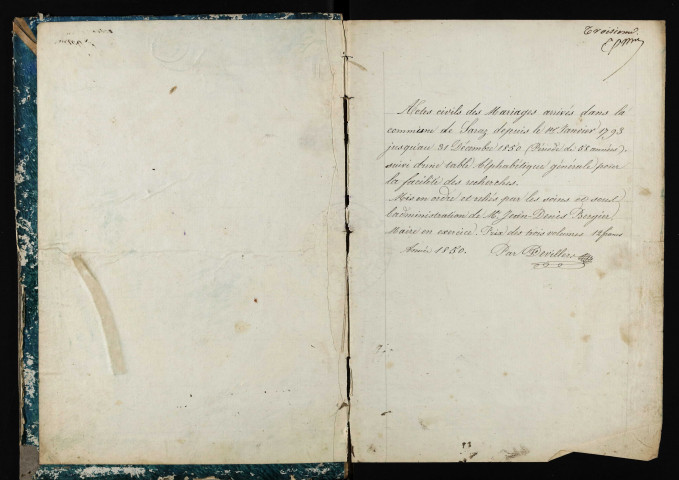 Troisième
Actes civils des Mariages arrivés dans la
commune de Saraz depuis le 1er Janvier 1793
jusqu'au 31 Décembre 1850 (Période de 58 années).
suivi d'une table Alphabétique générale pour
la facilité des recherches.
Mis en ordre et reliés par les soins et sous
l'administration de Mr. Jean-Denis Bergier,
Maire en exercice. Prix des trois volumes 12 francs
Année 1850. Par Devillers